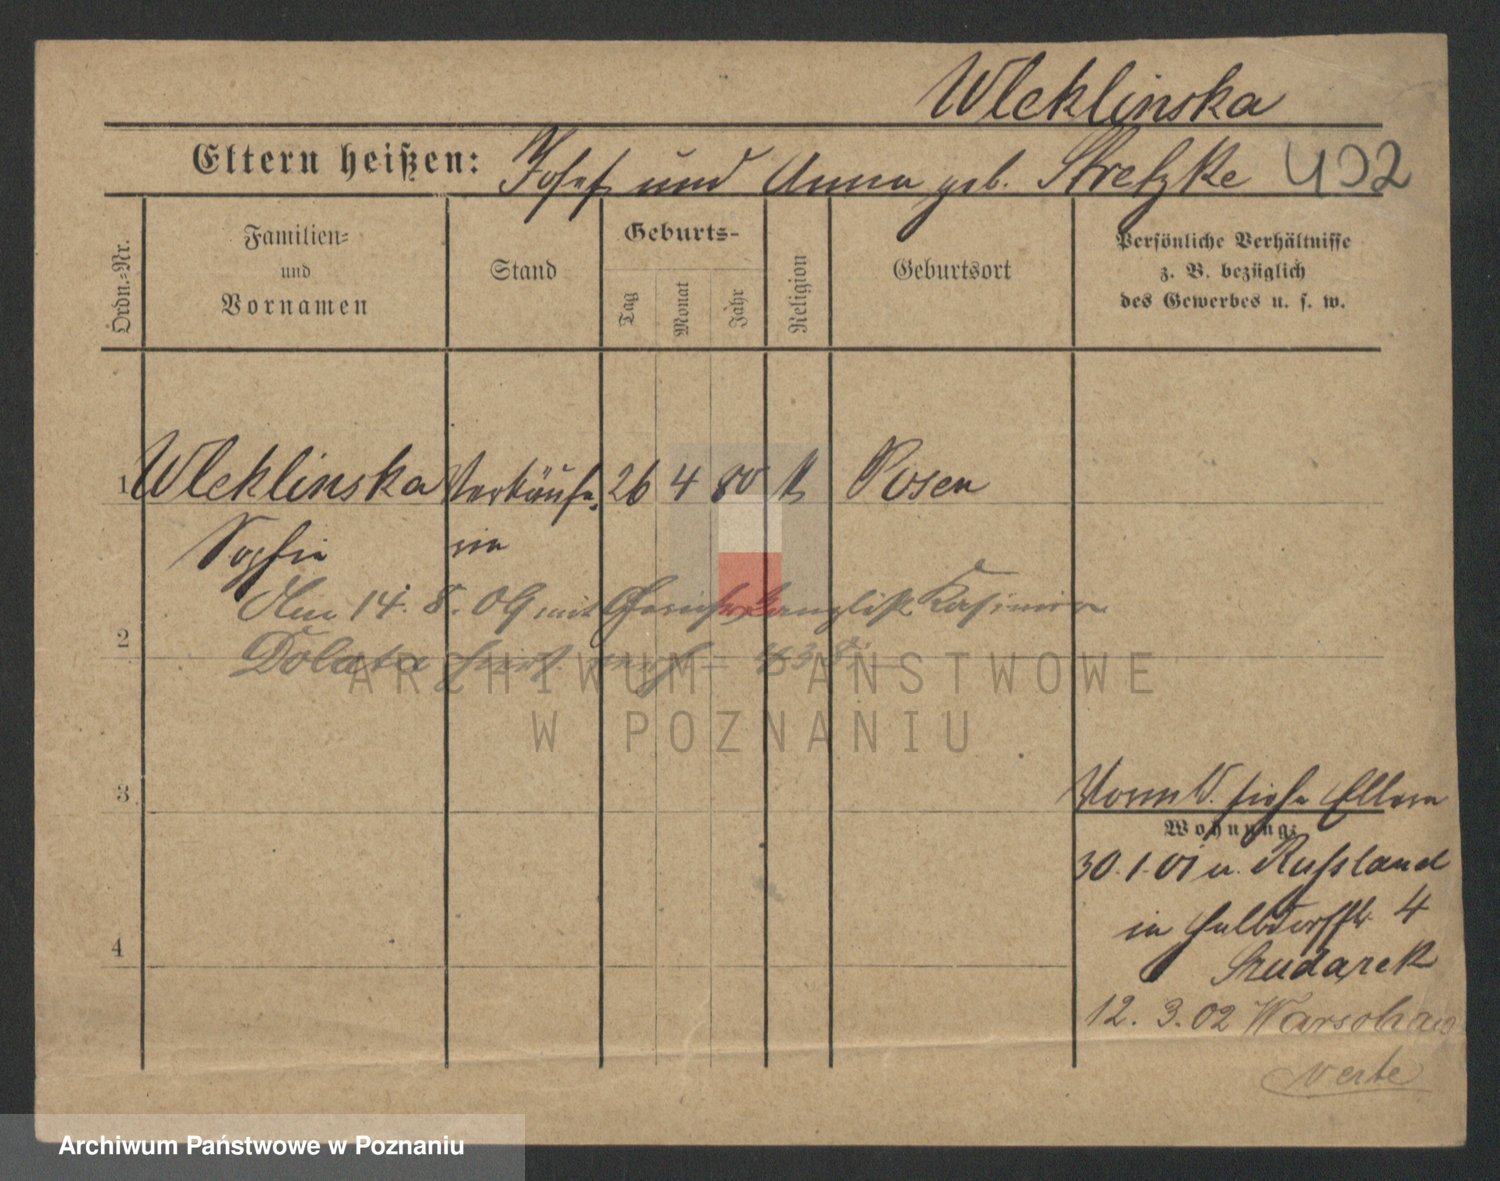 Wleklinska
Eltern heißen: Josef und Anna geb. Stretzke 402
Ordn.-Nr.
Familien-
und
Vornamen
Stand
Geburts-
Tag
Monat
Jahr
Religion
Geburtsort
Persönliche Verhältnisse
z. B. bezüglich
des Gewerbes u. s. w.
1 Wleklinska Verkäufe- 26 4 80 k Posen
Sophie rin
Am 14. 8. 09 mit Gerichtskanzlist Kasimir
2
Dolata
ARCHIWUM PAŃSTWOWE
W POZNANIU
3
Vorm W. siehe Eltern
Wohnung:
30. 1. 01 u. Russland
in Halbdorffstr 4
4
Szudarek
12. 3. 02 Warschau
verte
Archiwum Państwowe w Poznaniu